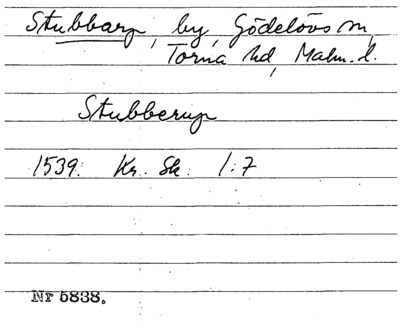 Stubbarp, by, Gödelövs sn,
Torna hd, Malm. l.
Stubberup
1539. Kr. Sk. 1:7
Nr 5838.